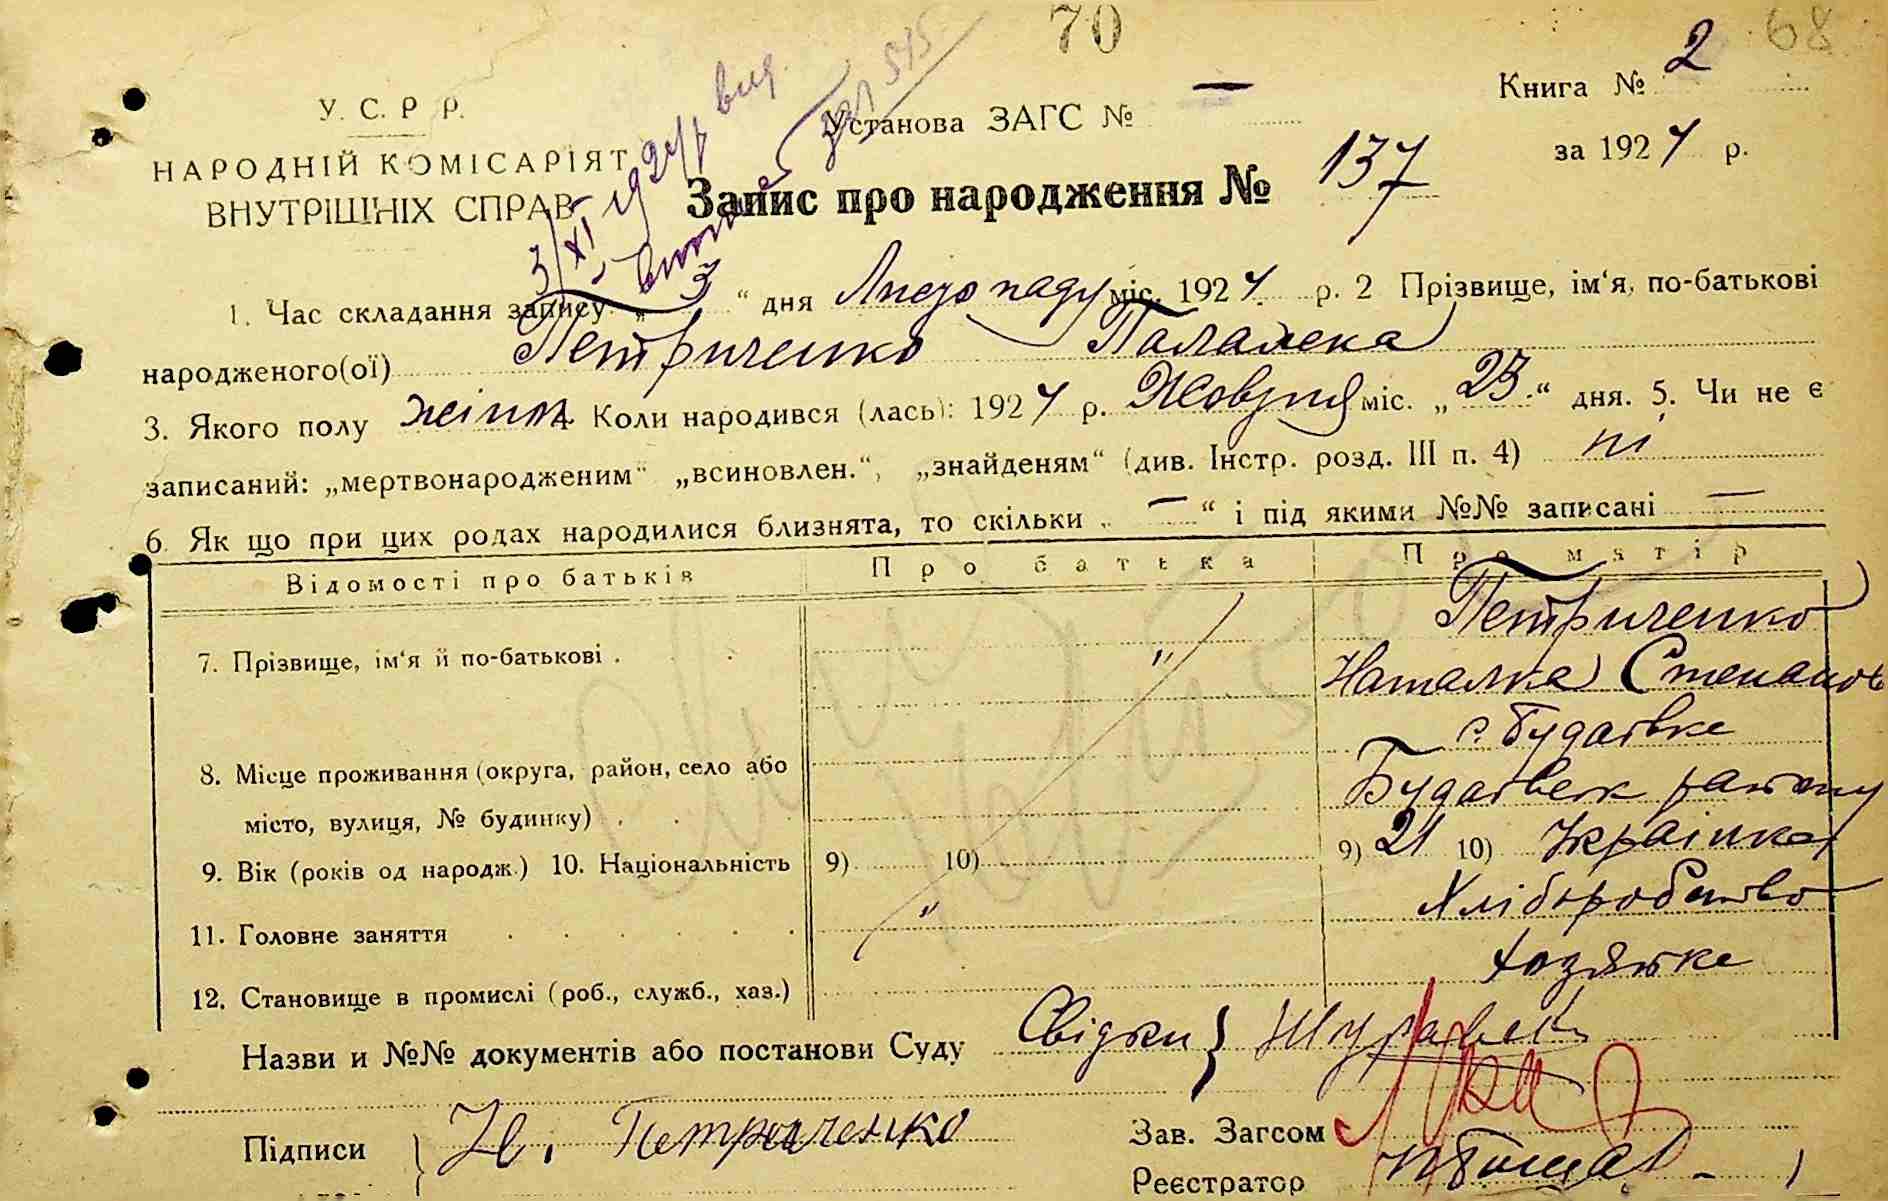 70
68
У. С. Р Р.
НАРОДНІЙ КОМІСАРІЯТ
ВНУТРІШНІХ СПРАВ
Установа ЗАГС № —
Книга № 2
за 1924 р.
Запис про народження № 137
1. Час складання запису „ 3 “ дня Листопаду міс. 1924 р. 2 Прізвище, ім‘я, по-батькові
народженого(ої) Петриченко Палажка
3. Якого полу жіноч. 4 Коли народився (лась): 1924 р. Жовтня міс. „ 23 “ дня. 5. Чи не є
записаний: „мертвонародженим“ „всиновлен.“, „знайденям“ (див. Інстр. розд. III п. 4) ні
6 Як що при цих родах народилися близнята, то скільки „ — “ і під якими №№ записані —
Відомості про батьків Про батька Про матір
7. Прізвище, ім‘я й по-батькові . Петриченко
Наталка Степанов
8. Місце проживання (округа, район, село або
місто, вулиця, № будинку) . с. Будаївка
Будаївськ району
9. Вік (років од народж.) 10. Національність 9) 10) 9) 21 10) Українка
11. Головне заняття Хліборобство
12. Становище в промислі (роб., служб., хаз.) Хозяйка
Назви и №№ документів або постанови Суду Свідки }
Підписи Н. Петриченко
Зав. Загсом
Реєстратор